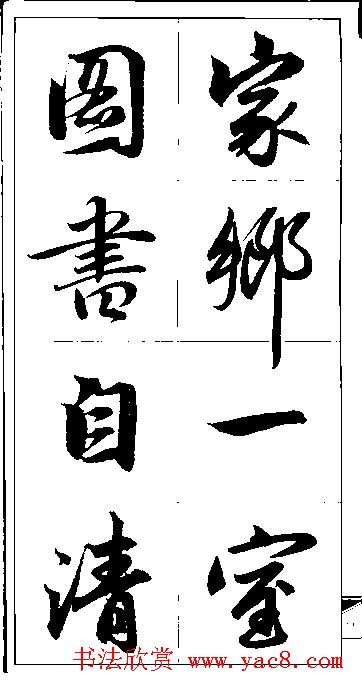 家鄉一室
圖書自清
书法欣赏 www.yac8.com